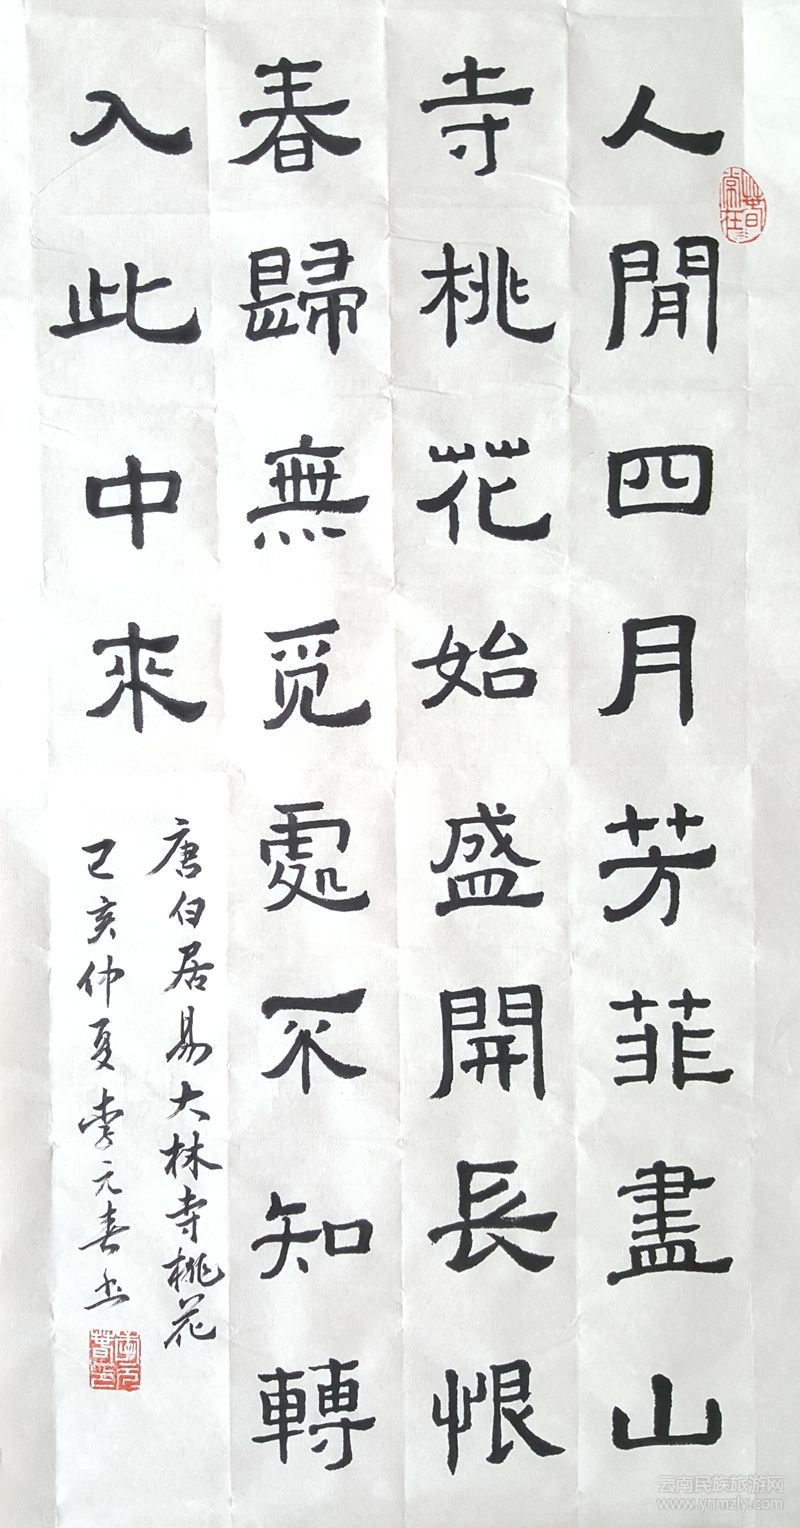 人閒四月芳菲盡山
寺桃花始盛開長恨
春歸無觅處不知轉
入此中來
唐白居易大林寺桃花
己亥仲夏李元春书
春常在
李元春印
云南民族旅游网
www.ynmzly.com